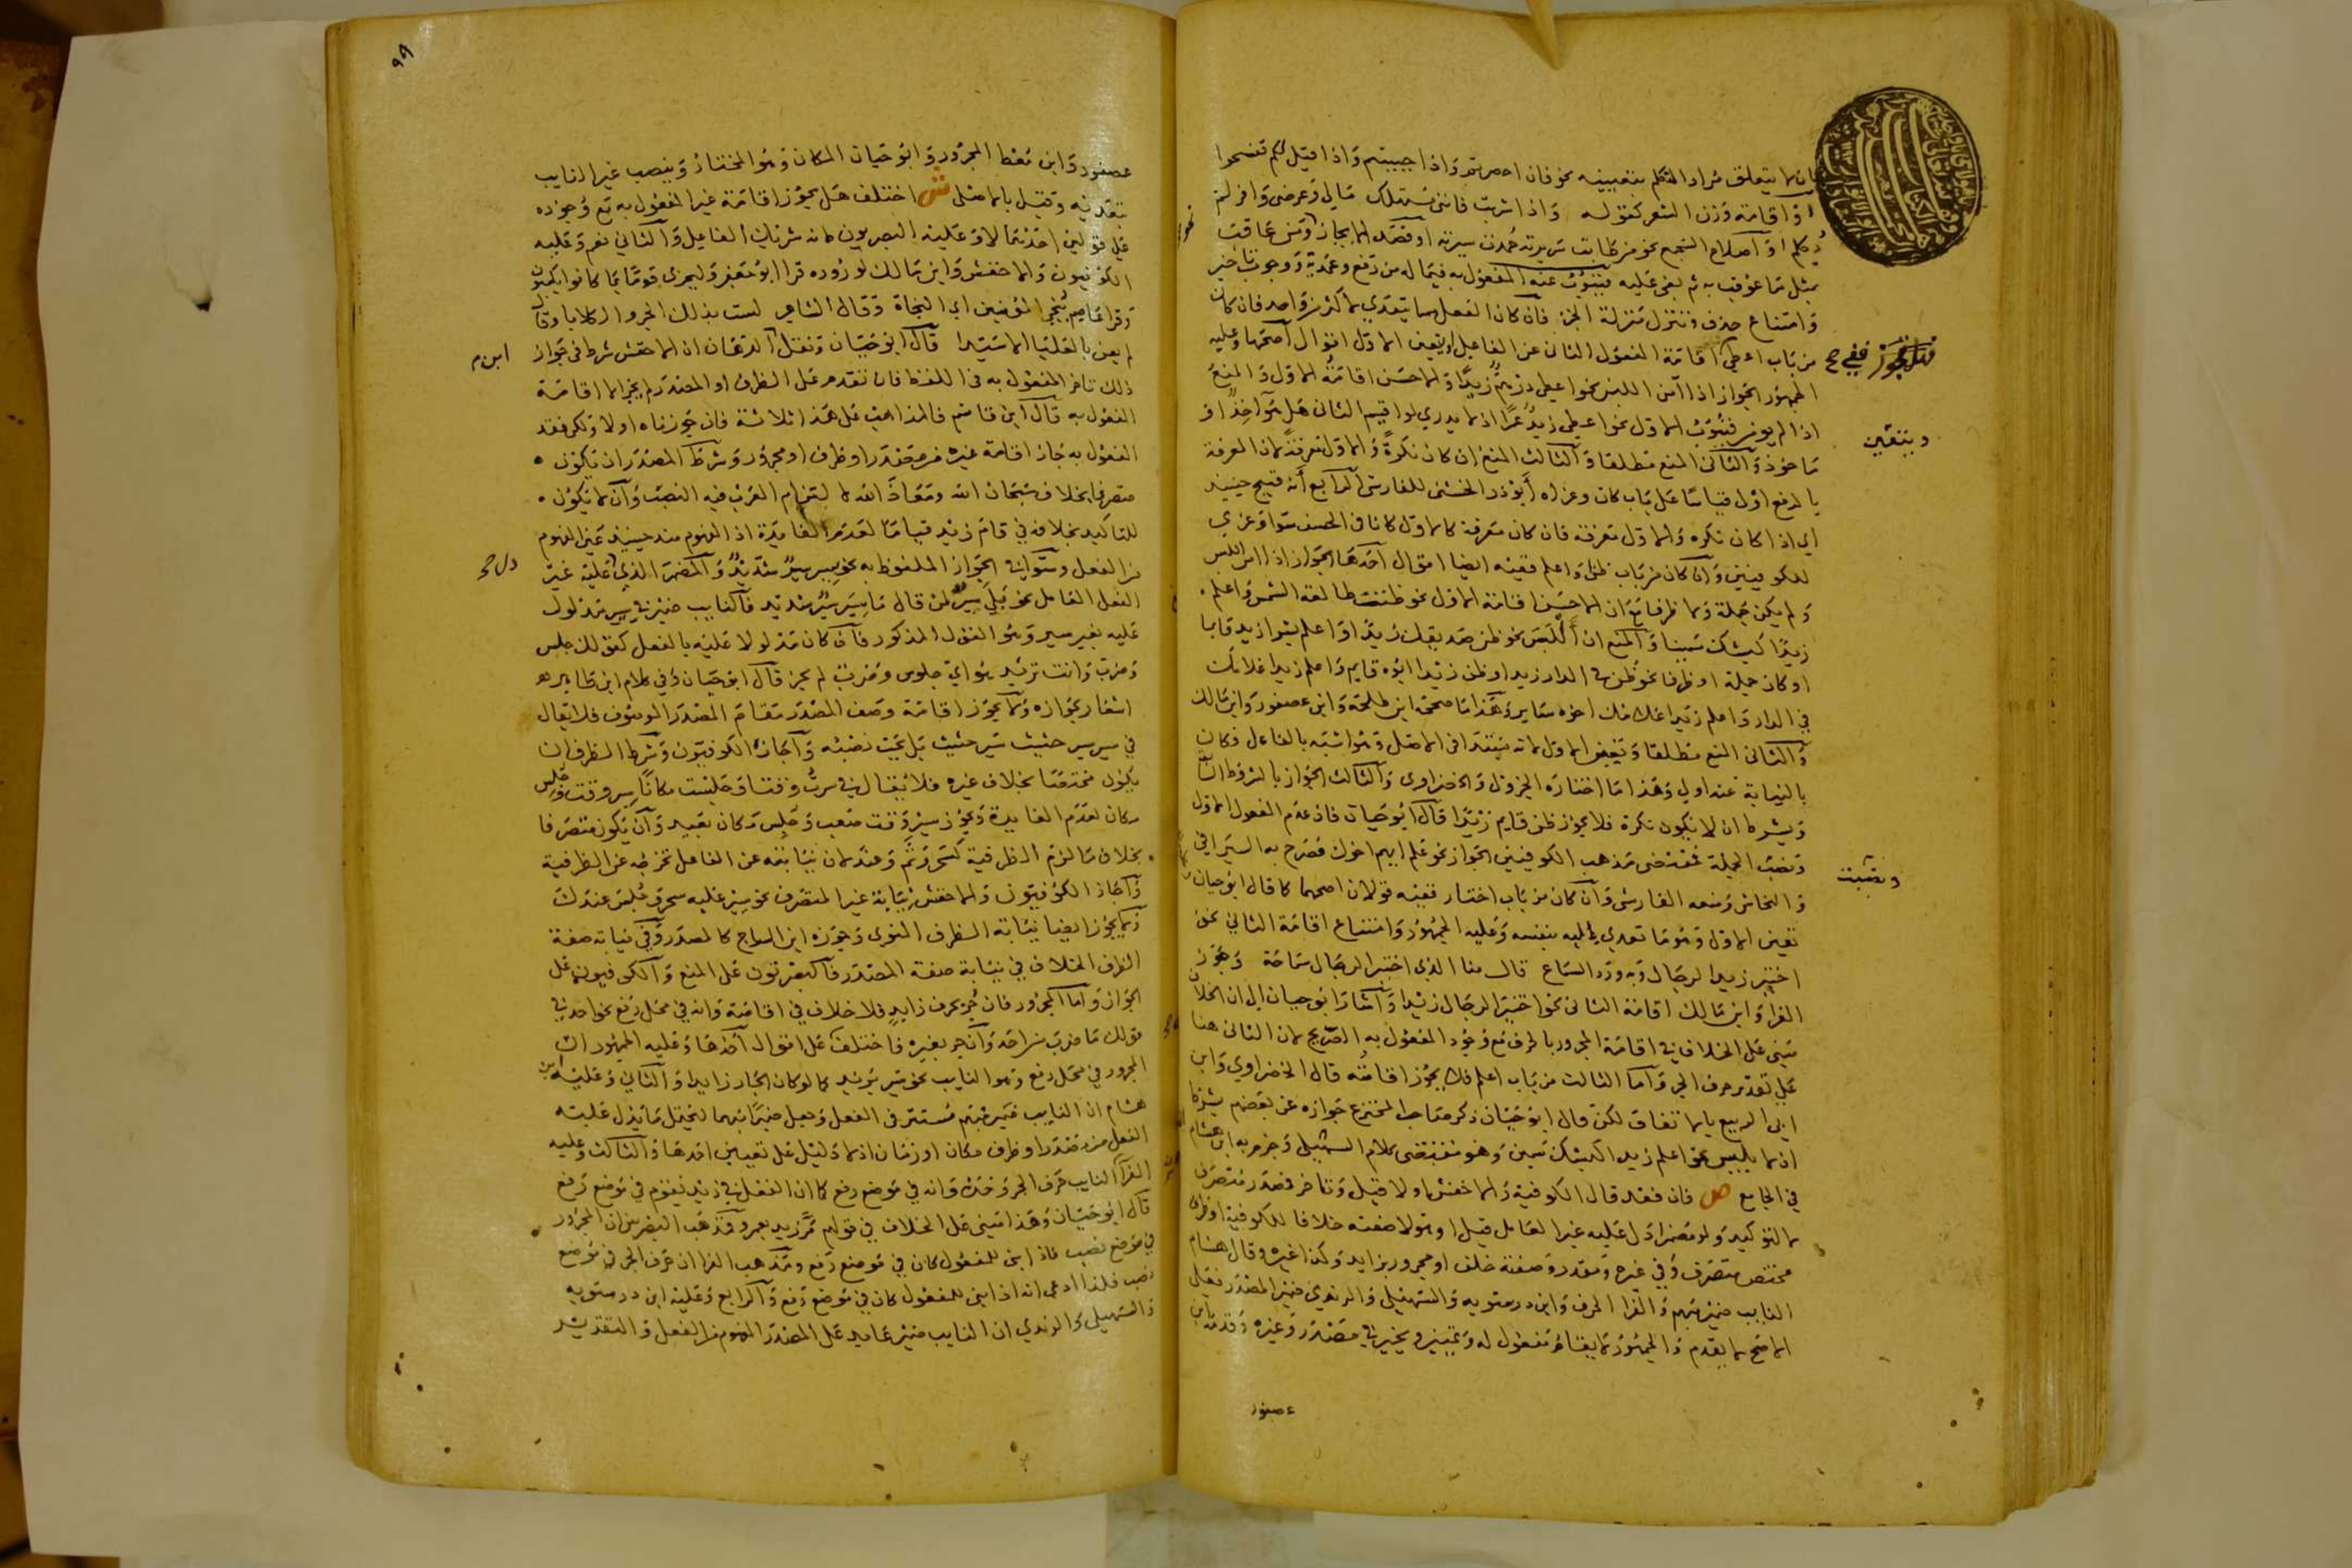 بان لا يتعلق مراد المتكلم بتعيينه نحو فان احصرتم واذا حييتم واذا قيل لكم تفسحوا
او اقامة وزن الشعر كقوله واذا شربت فانني مستهلك مالي وعرضي وافر لم
يكلم او اصلاح السجع نحو من طابت سريرته حمدت سيرته او قصد الايجاز ومن عاقب
بمثل ما عوقب به ثم بغي عليه فينوب عنه المفعول به فيما له من رفع وعمدية ووجوب تاخير
وامتناع حذف وتنزل منزلة الجزء فان كان الفعل مما يتعدي لاكثر من واحد فان كان
من باب اعطى اقامة المفعول الثاني عن الفاعل او يتعين الاول اقوال اصحها وعليه
الجمهور الجواز اذا امن اللبس نحو اعطي درهم زيدا والاحسن اقامة الاول والمنع
اذا لم يومن فينوب الاول نحو اعطي زيد عمرا اذ لا يدري لو اقيم الثاني هل هو اخذ او
ماخوذ والثاني المنع مطلقا والثالث المنع ان كان نكرة والاول معرفة لان المعرفة
بالرفع اولى قياسا على باب كان وعزاه ابو ذر الخشني للفارسي الرابع انه قبيح حينئذ
اي اذا كان نكرة والاول معرفة فان كان معرفة كالاول كانا في الحسن سوا وعزي
للكوفيين وان كان من باب ظن واعلم ففيه ايضا اقوال احدها الجواز اذا امن اللبس
ولم يكن جملة ولا ظرفا مع ان الاحسن اقامة الاول نحو ظننت طالعة الشمس واعلم
زيدا كبشك سمينا والمنع ان البس نحو ظن صديقك زيدا واعلم بشرا زيد قايما
او كان جملة او ظرفا نحو ظن في الدار زيد او ظن زيدا ابوه قايم واعلم زيدا غلامك
في الدار واعلم زيدا غلامك اخوه ساير وهذا ما صححه ابن طلحة وابن عصفور وابن مالك
والثاني المنع مطلقا وتعين الاول لانه مبتدا في الاصل وهو اشبه بالفاعل فكان
بالنيابة عنه اولي وهذا ما اختاره الجزولي والخضراوي والثالث الجواز بالشروط السا
ويشرط ان لا يكون نكرة فلا يجوز ظن قايم زيدا قال ابو حيان فان عدم المفعول الاول
ونصب الجملة فمقتضى مذهب الكوفيين الجواز نحو علم ايهم اخوك فصرح به السيرافي
والنحاس ومنعه الفارسي وان كان من باب اختار ففيه قولان اصحهما كما قال ابو حيان
تعين الاول وهو ما تعدي اليه بنفسه وعليه الجمهور وامتناع اقامة الثاني نحو
اختير زيد الرجال وبه ورد السماع قال منا الذي اختير الرجال سماحة وجوز
الفرا وابن مالك اقامة الثاني نحو اختير الرجال زيدا واشار ابو حيان الى ان الخلاف
مبني على الخلاف في اقامة المجرور بالحرف مع وجود المفعول به الصريح لان الثاني هنا
على تقدير حرف الجر واما الثالث من باب اعلم فلا يجوز اقامته قال الخضراوي وابن
ابي الربيع بالاتفاق لكن قال ابو حيان ذكر صاحب المخترع جوازه عن بعضهم بشرط
ان لا يلبس نحو اعلم زيدا كبشك سمين وهو مقتضى كلام التسهيل وجزم به ابن هشام
في الجامع ص فان فقد قال الكوفية والاخفش اولا قيل وتاخر فمصدر متصرف
لا لتوكيد ولو مضمرا دل عليه غير العامل قيل او هو لا صفته خلافا للكوفية او ظرف
مختص متصرف وفي غيره ومقدر وصفته خلف او مجرور بزايد وكذا غيره وقال هشام
النايب ضمير مبهم والفرا الحرف وابن درستويه والسهيلي والرندي ضمير المصدر فعلي
الاصح لا يقدم والجمهور لا يقام مفعول له وتمييز ويخير في مصدر وغيره وقدمه ابن
عصفور
هل يجوز ففي ح
ويتعين
ونصبت
٩٩
عصفور وابن معط المجرور وابو حيان المكان وهو المختار وينصب غير النايب
بتعديه وقيل بالاصل ش اختلف هل يجوز اقامة غير المفعول به مع وجوده
على قولين احدهما لا وعليه البصريون لانه شريك الفاعل والثاني نعم وعليه
الكوفيون والاخفش وابن مالك لوروده قرا ابو جعفر وليجزى قوما بما كانوا يكسبون
وقرا عاصم نجي المومنين اي النجاة وقال الشاعر لسب بذلك الجرو الكلابا وقال
لم يعن بالعليا الا سيدا قال ابو حيان ونقل الدهان ان الاخفش شرط في جواز
ذلك تاخر المفعول به في اللفظ فان تقدم على الظرف او المصدر لم يجز الا اقامة
المفعول به قال ابن قاسم فالمذاهب على هذا ثلاثة فان جوزناه اولا ولكن فقد
المفعول به جاز اقامة غيره من مصدر او ظرف او مجرور وشرط المصدر ان يكون
متصرفا بخلاف سبحان الله ومعاذ الله لالتزام العرب فيه النصب وان لا يكون
للتاكيد بخلافه في قام زيد قياما لعدم الفايدة اذ المفهوم منه حينئذ غير المفهوم
من الفعل وسوا في الجواز الملفوظ به نحو سير سير شديد والمضمر الذي دل عليه غير
الفعل العامل نحو بلى سير لمن قال ما سير سير شديد فالنايب ضمير في سير مدلول
عليه بغير سير وهو القول المذكور فان كان مدلولا عليه بالفعل كقولك جلس
وضرب وانت تريد هو اي جلوس وضرب لم يجز قال ابو حيان وفي كلام ابن طاهر
اشعار بجوازه ولا يجوز اقامة وصف المصدر مقام المصدر الموصوف فلا يقال
في سير سير حثيث سير حثيث بل يجب نصبه واجازه الكوفيون وشرط الظرف ان
يكون مختصا بخلاف غيره فلا يقال في سرت وقتا وجلست مكانا سير وقت وجلس
مكان لعدم الفايدة ويجوز سير وقت صعب وجلس مكان بعيد وان يكون متصرفا
بخلاف ما لزم الظرفية كسحر وثم وعند لان نيابته عن الفاعل تخرجه عن الظرفية
واجاز الكوفيون والاخفش نيابة غير المتصرف نحو سير عليه سحر وجلس عندك
ولا يجوز ايضا نيابة الظرف المنوي وجوزه ابن السراج كالمصدر وفي نيابة صفة
الظرف الخلاف في نيابة صفة المصدر فالبصريون على المنع والكوفيون على
الجواز واما المجرور فان جر بحرف زايد فلا خلاف في اقامته وانه في محل رفع نحو احد في
قولك ما ضرب من احد وان جر بغيره فاختلف على اقوال احدها وعليه الجمهور ان
المجرور في محل رفع وهو النايب نحو سير بزيد كما لو كان الجار زايدا والثاني وعليه ابن
هشام ان النايب ضمير مبهم مستتر في الفعل وجعل ضميرا مبهما ليحتمل ما يدل عليه
الفعل من مصدر او ظرف مكان او زمان اذ لا دليل على تعيين احدها والثالث وعليه
الفرا النايب حرف الجر وحده وانه في موضع رفع كما ان الفعل في زيد يقوم في موضع رفع
قال ابو حيان وهذا مبني على الخلاف في قولهم مر زيد بعمرو فمذهب البصريين ان المجرور
في موضع نصب فاذا بني للمفعول كان في موضع رفع ومذهب الفرا ان حرف الجر في موضع
نصب فلذا ادعي انه اذا بني للمفعول كان في موضع رفع والرابع وعليه ابن درستويه
والسهيلي والرندي ان النايب ضمير عايد على المصدر المفهوم من الفعل والتقدير